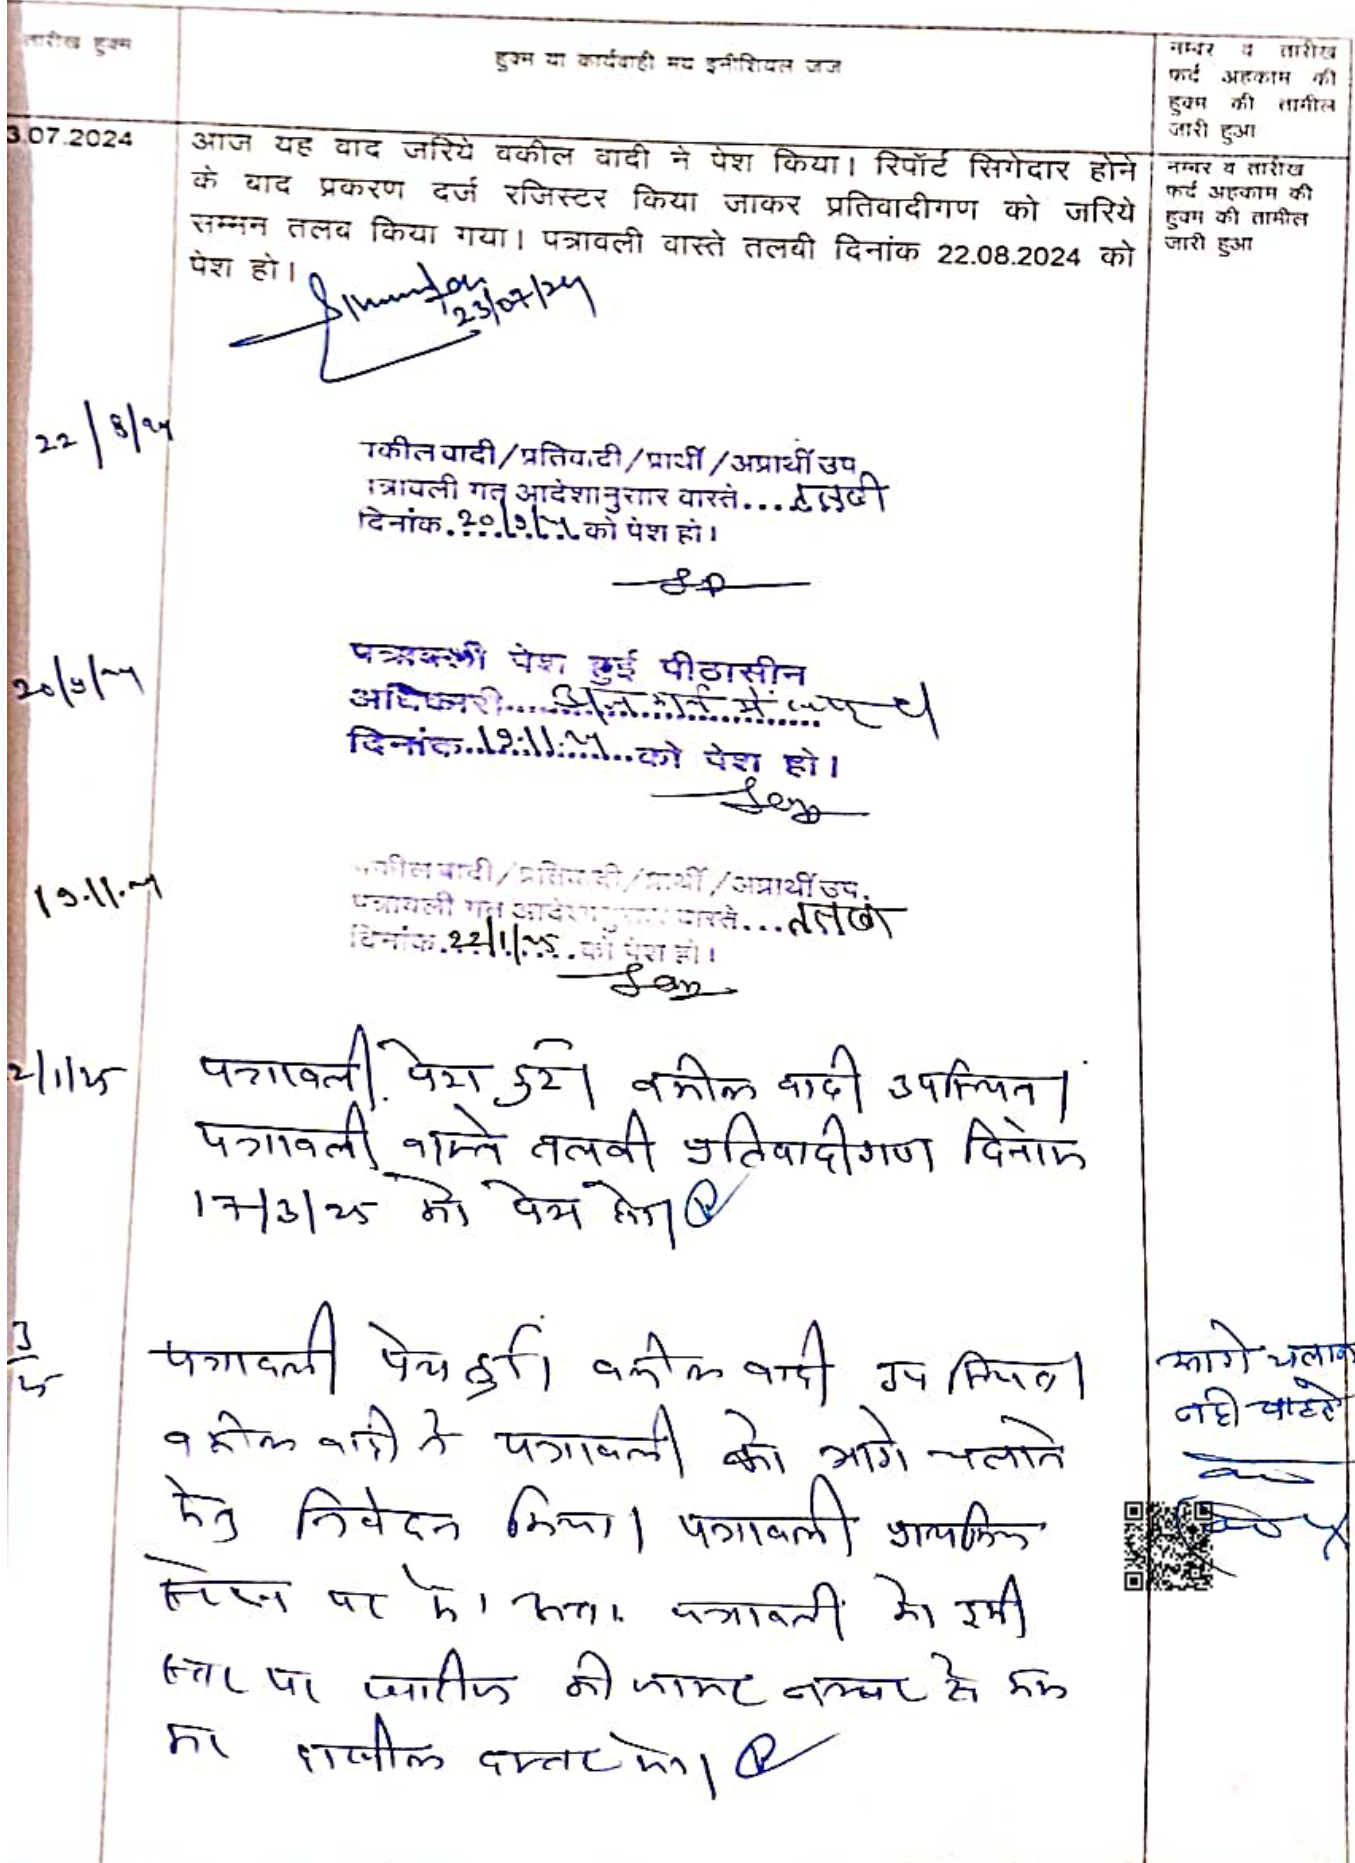 तारीख हुक्म
हुक्म या कार्यवाही मय इनीशियल जज
नम्बर व तारीख
फर्द अहकाम की
हुक्म की तामील
जारी हुआ
3.07.2024
आज यह वाद जरिये वकील वादी ने पेश किया। रिपोंर्ट सिगेदार होने
के बाद प्रकरण दर्ज रजिस्टर किया जाकर प्रतिवादीगण को जरिये
सम्मन तलब किया गया। पत्रावली वास्ते तलबी दिनांक 22.08.2024 को
पेश हो।
नम्बर व तारीख
फर्द अहकाम की
हुक्म की तामील
जारी हुआ
23/07/24
22/8/24
वकील वादी/प्रतिवादी/प्रार्थी/अप्रार्थी उप.
पत्रावली गत आदेशानुसार वास्ते...तलबी
दिनांक.20/9/24.को पेश हो।
20/9/24
पत्रावली पेश हुई पीठासीन
अधिकारी
दिनांक..19.11.24...को पेश हो।
19.11.24
वकील वादी/प्रतिवादी/प्रार्थी/अप्रार्थी उप.
पत्रावली गत आदेशानुसार वास्ते...तलबी
दिनांक.22/1/25.को पेश हो।
2/1/25
पत्रावली पेश हुई। वकील वादी उपस्थित।
पत्रावली वास्ते तलबी प्रतिवादीगण दिनांक
17/3/25 को पेश हो।
3
25
पत्रावली पेश हुई। वकील वादी उपस्थित।
वकील वादी ने पत्रावली को आगे चलाने
हेतु निवेदन किया। पत्रावली प्राथमिक
स्टेज पर है। अतः पत्रावली को इसी
स्तर पर खारीज की जाकर नम्बर से कम
कर दाखील दफ्तर हो।
आगे चलाना
नही चाहते